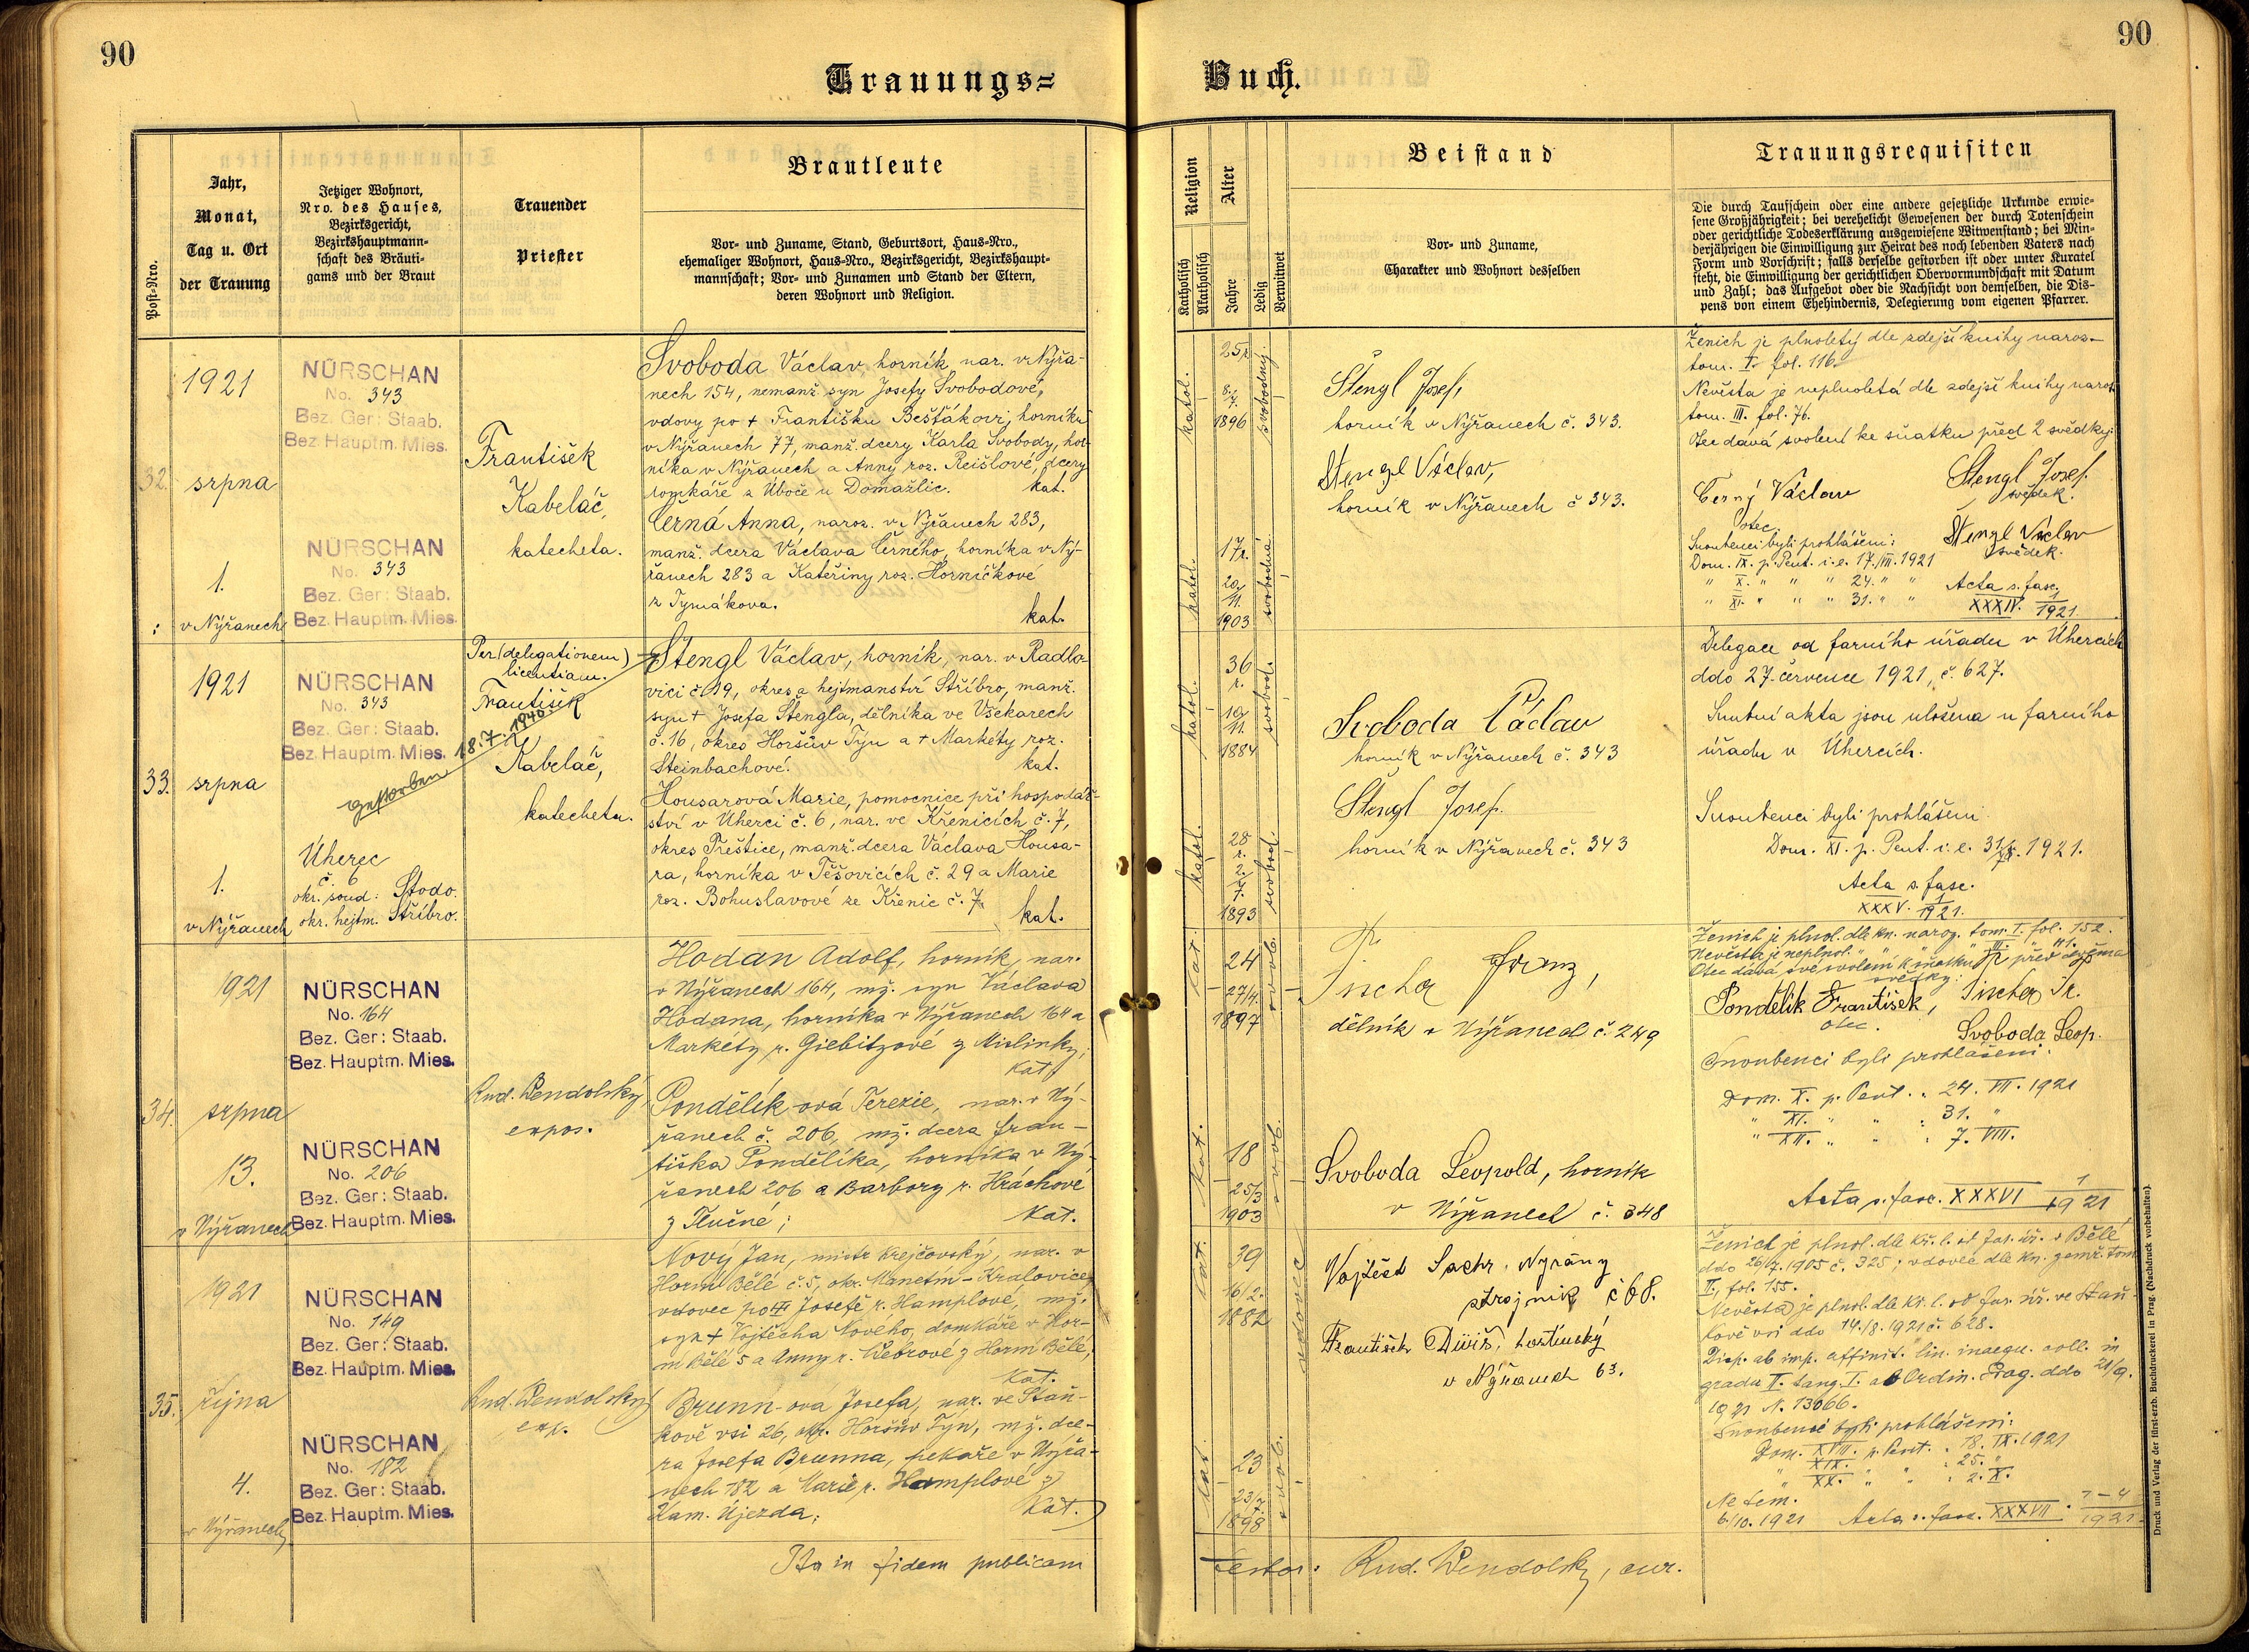 90
Trauungs=
Jahr,
Monat,
Tag u. Ort
der Trauung
Post-Nro.
Jetziger Wohnort,
Nro. des Hauses,
Bezirksgericht,
Bezirkshauptmann-
schaft des Bräuti-
gams und der Braut
Trauender
Priester
Brautleute
Vor- und Zuname, Stand, Geburtsort, Haus-Nro.,
ehemaliger Wohnort, Haus-Nro., Bezirksgericht, Bezirkshaupt-
mannschaft; Vor- und Zunamen und Stand der Eltern,
deren Wohnort und Religion.
32.
1921
srpna
1.
v Nýřanech
NÜRSCHAN
No. 343
Bez. Ger: Staab.
Bez. Hauptm. Mies.
NÜRSCHAN
No. 343
Bez. Ger: Staab.
Bez. Hauptm. Mies.
František
Kabeláč,
katecheta.
Svoboda Václav, horník, nar. v Nýřa-
nech 154, nemanž. syn Josefy Svobodové,
vdovy po + Františku Bešťákovi, horníku
v Nýřanech 77, manž. dcery Karla Svobody, hor-
níka v Nýřanech a Anny roz. Reišlové, dcery
domkáře z Úboče u Domažlic. kat.
Černá Anna, naroz. v Nýřanech 283,
manž. dcera Václava Černého, horníka v Ný-
řanech 283 a Kateřiny roz. Horníčkové
z Tymákova. kat.
33.
1921
srpna
1.
v Nýřanech
NÜRSCHAN
No. 343
Bez. Ger: Staab.
Bez. Hauptm. Mies.
gestorben 18.7.1940
Úherec
č. 6
okr. soud: Stodo.
okr. hejtm. Stříbro.
Per (delegationem)
licentiam.
František
Kabeláč,
katecheta.
Štengl Václav, horník, nar. v Radlo-
vici č. 19, okres a hejtmanství Stříbro, manž.
syn + Josefa Štengla, dělníka ve Všekarech
č. 16, okres Horšův Týn a + Markéty roz.
Steinbachové. kat.
Housarová Marie, pomocnice při hospodář-
ství v Úherci č. 6, nar. ve Křenicích č. 7,
okres Přeštice, manž. dcera Václava Housa-
ra, horníka v Těšovicích č. 29 a Marie
roz. Bohuslavové ze Křenic č. 7. kat.
34.
1921
srpna
13.
v Nýřanech
NÜRSCHAN
No. 164
Bez. Ger: Staab.
Bez. Hauptm. Mies.
NÜRSCHAN
No. 206
Bez. Ger: Staab.
Bez. Hauptm. Mies.
Rud. Wendolský
expos.
Hodan Adolf, horník, nar.
v Nýřanech 164, mž. syn Václava
Hodana, horníka v Nýřanech 164 a
Markéty r. Giebitzové z Mislinky;
kat.
Pondělík-ová Terezie, nar. v Ný-
řanech č. 206, mž. dcera Fran-
tiška Pondělíka, horníka v Ný-
řanech 206 a Barbory r. Hráchové
z Tlučné; kat.
35.
1921
října
4.
v Nýřanech
NÜRSCHAN
No. 149
Bez. Ger: Staab.
Bez. Hauptm. Mies.
NÜRSCHAN
No. 182
Bez. Ger: Staab.
Bez. Hauptm. Mies.
Rud. Wendolský
exp.
Nový Jan, mistr krejčovský, nar. v
Horní Bělé č. 5, okr. Manetín-Kralovice,
vdovec po Josefě r. Hamplové, mž.
syn + Vojtěcha Nového, domkáře v Hor-
ní Bělé 5 a Anny r. Webrové z Horní Bělé;
kat.
Brunn-ová Josefa, nar. ve Staň-
kově vsi 26, okr. Horšův Týn, mž. dce-
ra Josefa Brunna, pekaře v Nýřa-
nech 182 a Marie r. Hamplové z
Kam. Újezda; kat.
Ita in fidem publicam
90
Buch.
Religion
Katholisch
Akatholisch
Alter
Jahre
Ledig
Verwitwet
Beistand
Vor- und Zuname,
Charakter und Wohnort desselben
Trauungsrequisiten
Die durch Taufschein oder eine andere gesetzliche Urkunde erwie-
sene Großjährigkeit; bei verehelicht Gewesenen der durch Totenschein
oder gerichtliche Todeserklärung ausgewiesene Witwenstand; bei Min-
derjährigen die Einwilligung zur Heirat des noch lebenden Vaters nach
Form und Vorschrift; falls derselbe gestorben ist oder unter Kuratel
steht, die Einwilligung der gerichtlichen Obervormundschaft mit Datum
und Zahl; das Aufgebot oder die Nachsicht von demselben, die Dis-
pens von einem Ehehindernis, Delegierung vom eigenen Pfarrer.
katol.
25 r.
8./7.
1896
svobodný
katol.
17 r.
20/11.
1903
svobodná
Štengl Josef,
horník v Nýřanech č. 343.
Stengl Václav,
horník v Nýřanech č 343.
Ženich je plnoletý dle zdejší knihy naroz.
tom. I. fol. 116.
Nevěsta je neplnoletá dle zdejší knihy naroz.
tom. III. fol. 76.
Otec dává svolení ke sňatku před 2 svědky:
Černý Václav
otec.
Stengl Josef.
svědek.
Stengl Václav
svědek.
Snoubenci byli prohlášeni:
Dom. IX. p. Pent. i. e. 17./VII. 1921
" X. " " " 24. " "
" XI. " " " 31. " "
Acta s. fasc.
XXXIV. 1/1921.
katol.
36
r.
10/11.
1884
svobod.
katol.
28
r.
2./7.
1893
svobod.
Svoboda Václav
horník v Nýřanech č. 343
Štengl Josef.
horník v Nýřanech č. 343
Delegace od farního úřadu v Úhercích
ddo 27. července 1921, č. 627.
Snubní akta jsou uložena u farního
úřadu v Úhercích.
Snoubenci byli prohlášeni
Dom. XI. p. Pent. i. e. 31./VII. 1921.
Acta s. fasc.
XXXV. 1/1921.
kat.
24
27/4.
1897
svob.
kat.
18
25/3
1903
svob.
Fischer Franz,
dělník v Nýřanech č. 249
Svoboda Leopold, horník
v Nýřanech č. 348
Ženich je plnol. dle kn. naroz. tom. I. fol. 152.
Nevěsta je neplnol. " " " " III. " 111.
Otec dává své svolení k sňatku před dvěma
svědky:
Pondělík František,
otec.
Fischer Fr.
Svoboda Leop.
Snoubenci byli prohlášeni:
Dom. X. p. Pent. : 24. VII. 1921
" XI. " " : 31. "
" XII. " " : 7. VIII.
Acta s. fasc. XXXVI 1/1921
kat.
39
16/2.
1882
vdovec
kat.
23
23/7.
1898
svob.
Vojtěch Sachr, Nyřany
strojník č 68.
František Diviš, hostinský
v Nýřanech 63.
Ženich je plnol. dle kř. l. od far. úř. v Bělé
ddo 26/7. 1905 č. 325; vdovec dle kn. zemř. tom.
II., fol. 155.
Nevěsta je plnol. dle kř. l. od far. úř. ve Staň-
kově vsi ddo 14./8. 1921 č. 628.
Disp. ab imp. affinit. lin. inaequ. coll. in
gradu II. tang. I. ab Ordin. Prag. ddo 21/9.
1921 N. 13066.
Snoubenci byli prohlášeni:
Dom. XVIII. p. Pent. : 18. IX. 1921
XIX. " " : 25. "
XX. " " : 2. X.
Ne tem.
6./10. 1921 Acta s. fasc. XXXVII. 1-4/1921
testor: Rud. Wendolský, cur.
Druck und Verlag der fürst-erzb. Buchdruckerei in Prag. (Nachdruck vorbehalten).